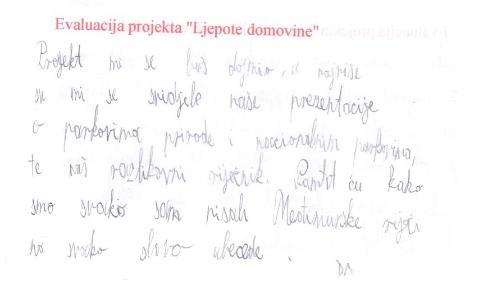 Evaluacija projekta "Ljepote domovine"
Projekt mi se baš dojmio, a najviše
su mi se svidjele naše prezentacije
o parkovima prirode i nacionalnim parkovima,
te naš razlikovni rječnik. Pamtit ću kako
smo svako sam pisali Međimurske riječi
na svako slovo abecede.